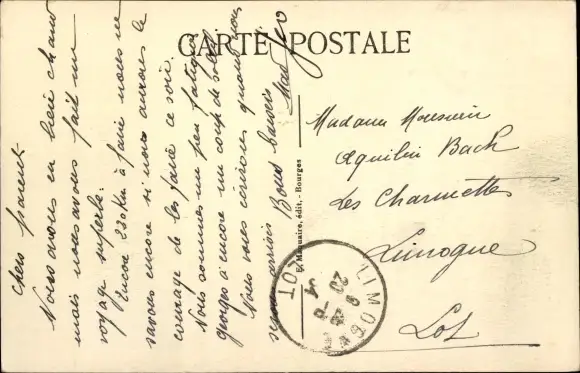 CARTE POSTALE
Chers parent
Nous avons eu bien chaud
mais nous avons fait un
voyage superbe.
Encore 230 Km à faire nous ne
savons encore si nous aurons le
courage de les faire ce soir.
Nous sommes un peu fatigué
georges a encore un coup de soleil
Nous vous écrirons quand nous
serons arrivés Bons baisers
Madame
Aquilin Bach
Les Charmettes
Limogne
Lot
édit.- Bourges
LIMOGNE
LOT
20